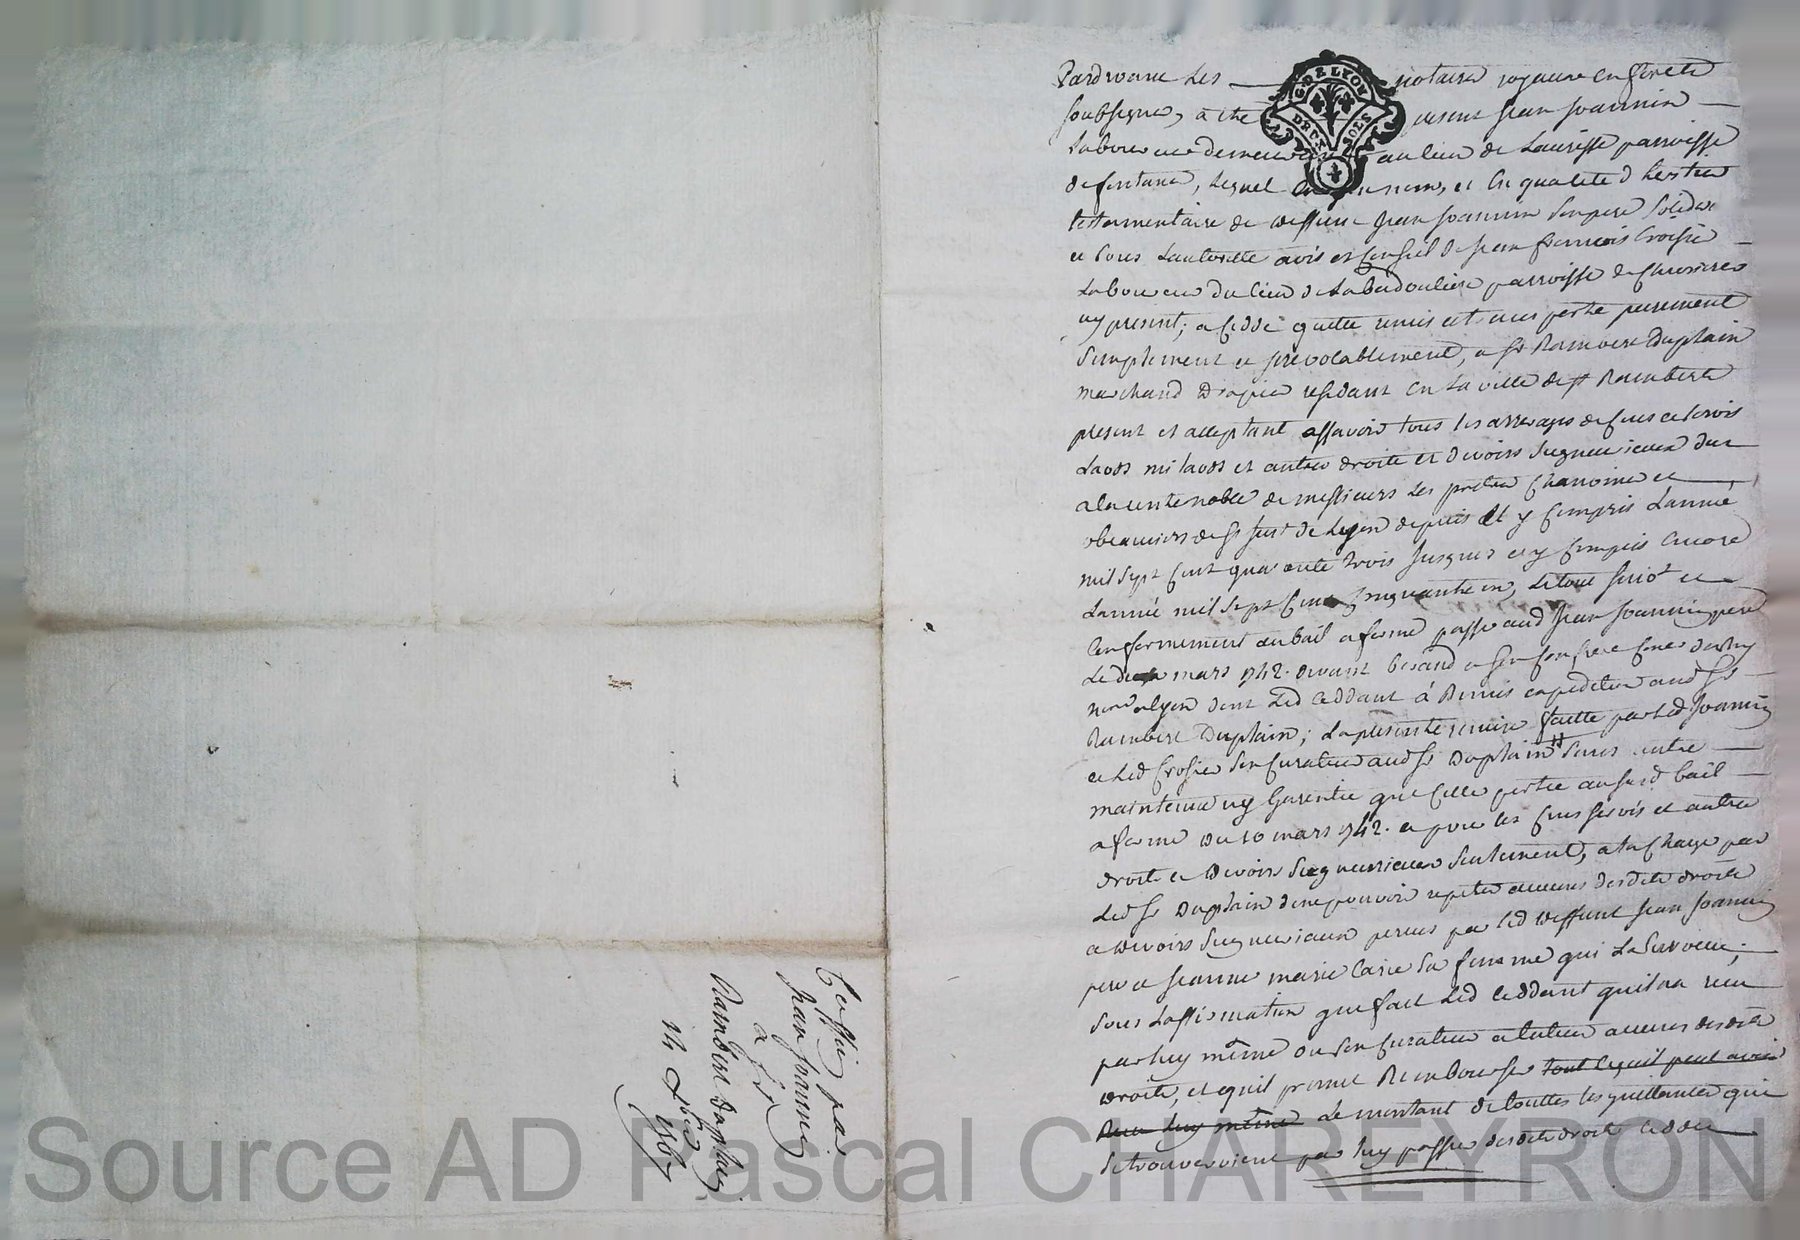 Pardevant Les notaires royaux en forets
soubsignes, a eté present Jean Joannin
Laboureur demeurant au lieu de parroisse
de fontanes, Lequel en nom, et En qualité d heritier
testamentaire de deffunt Jean Joannin son pere
et sous Lautorité avis et Conseil de Jean francois Crosier
Laboureur du lieu de parroisse de
icy present; a Cedé quitté remis et purement
simplement et irrevocablement, a Sr Rambert Duplain
marchand Drapier residant en La ville de st Rambert
present et acceptant assavoir tous les arrerages de Cens et servis
Laods mi laods et autres droits et devoirs seigneuriaux dus
a la rente noble de messieurs Les Chanoines et
obeanciers de St Just de Lyon depuis et y Compris L'année
mil sept Cent quarante trois Jusques et y Compris Encore
L'année mil sept Cent Cinquante un, Le tout et
Conformement au bail a ferme passé aud Jean Joannin pere
Le mars 1742. devant et son Confrere
nores a lyon dont Led Ceddant á Remis expedition aud Sr
Rambert Duplain; La presente remise faitte par Led Joannin
et Led Crosier son Curateur aud Sr Duplain sans autre
maintenue ny Garentie que Celle portée au susd bail
a ferme du 10 mars 1742. et pour les Cens servis et autres
droits et devoirs seigneuriaux seulement, a la Charge par
Led Sr Duplain de ne pouvoir repeter aucuns desdits droits
et devoirs seigneuriaux percus par led deffunt Jean Joannin
pere et Jeanne marie sa femme qui La survecu;
sous Laffirmation que fait Led Ceddant quil na recu
par luy même ou son Curateur aucuns desdits
droits, et quil promet Rembourser tout ce quil peut avoir
recu luy même Le montant de touttes les quittances qui
se trouveroient par luy passées desdits droits ceddés
Cession par
Jean Joannin
a Sr
Rambert Duplain
G DE LYON
DEUX SOLS
Source AD Pascal CHAREYRON